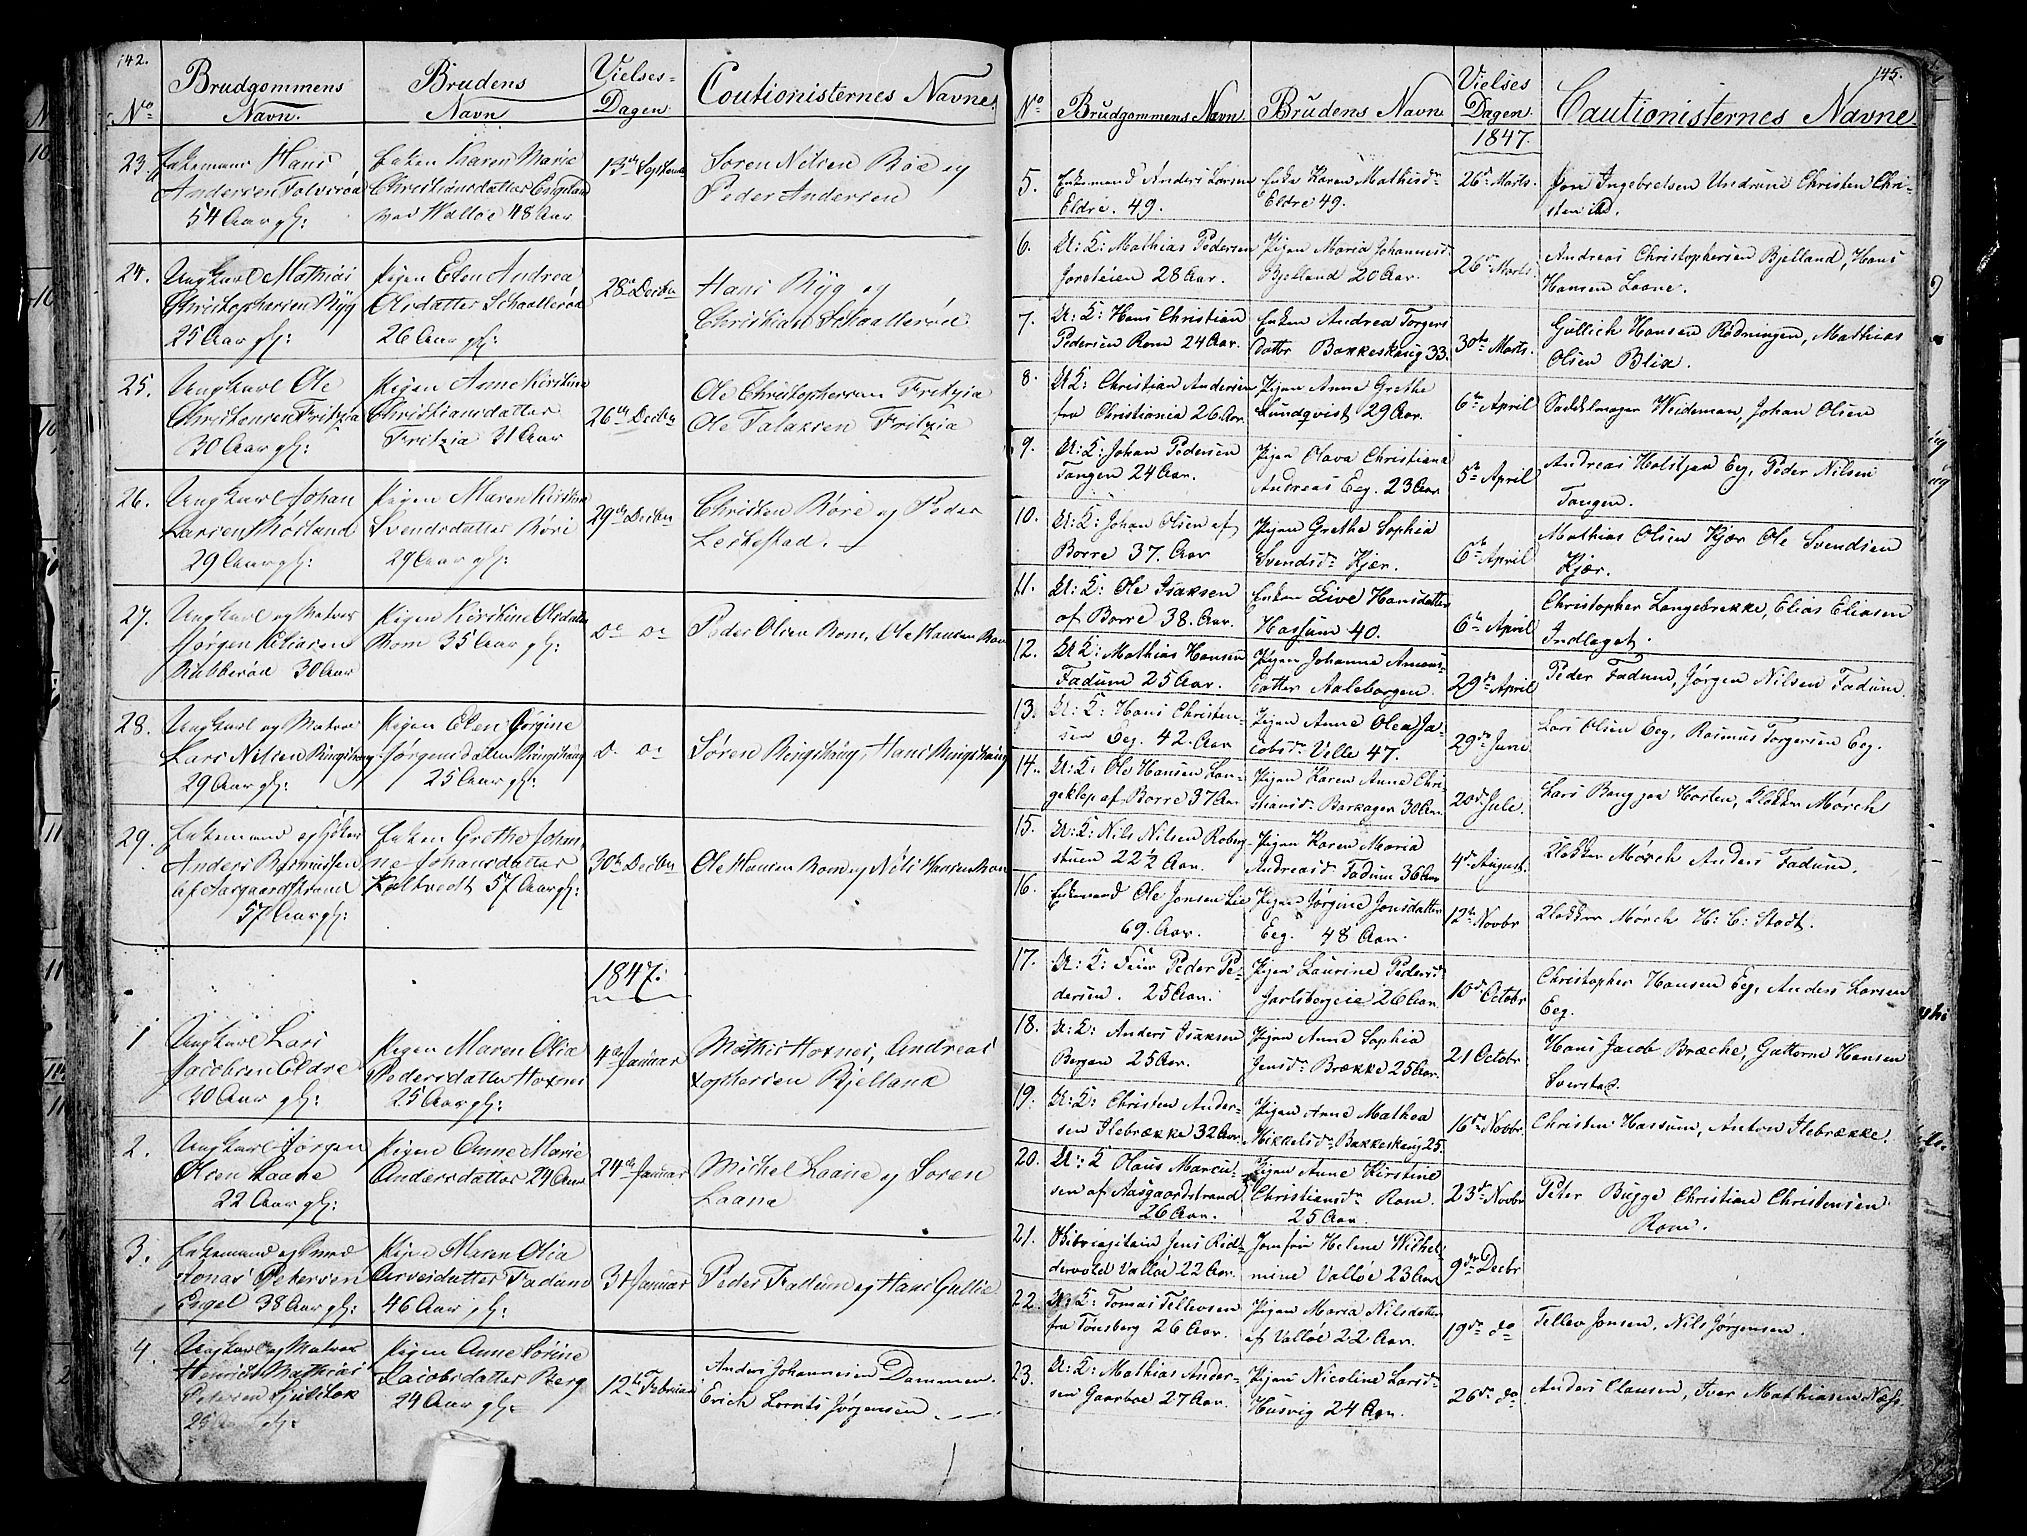 142.
No
Brudgommens
Navn.
Brudens
Navn
Vielses-
Dagen
Coutionisternes Navne
23. Enkemand Hans
Andersen Tolvsrød
54 Aar gl:
Enken Karen Marie
Christiansdatter
ved Walløe 48 Aar
13de Septembr
Søren Nilsen Røe og
Peder Andersen
24. Ungkarl Mathias
Christophersen Ryg
25 Aar gl:
Pigen Elen Andrea
Olsdatter Schaallerød
26 Aar gl:
28de Decbr
Hans Ryg og
Christian Schaallerød
25. Ungkarl Ole
Christensen Fritzia
30 Aar gl:
Pigen Anne Kirstine
Christiansdatter
Fritzia 31 Aar
26de Decbr
Ole Christophersen Fritzia
Ole Talaksen Fritzia
26. Ungkarl Johan
Larsen
29 Aar gl:
Pigen Maren Kirstine
Svendsdatter Røri
29 Aar gl:
29de Decbr
Christen Røre og Peder
Leikestad.
27. Ungkarl og Matros
Jørgen
Rubberød 30 Aar
Pigen Kirstine Olsdatter
Rom 35 Aar gl:
Do Do
Peder Olsen Rom, Ole Hansen Rom
28. Ungkarl og Matros
Lars Nilsen Ringshoug
29 Aar gl:
Pigen Elen Jørgine
Jørgensdatter Ringshoug
25 Aar gl:
Do Do
Søren Ringshoug, Hans Ringshoug
29. Enkemand og
Anders Rasmussen
af Aasgaardstrand
57 Aar gl:
Enken Grethe Johan-
ne Johansdatter
57 Aar gl:
30te Decbr
Ole Hansen Rom og Nils Hansen Rom
1847:
1 Ungkarl Lars
Jacobsen Eldre
30 Aar gl:
Pigen Maren Olia
Pedersdatter Hoxnes
25 Aar gl:
4de Januar
Mathis Hoxnes, Andreas
Xophersen Bjelland
2. Ungkarl Jørgen
Olsen Laane
22 Aar gl:
Pigen Anne Marie
Andersdatter 29 Aar
24de Januar
Michel Laane og Soren
Laane
3. Enkemand og Smed
Jonas Petersen
38 Aar gl:
Pigen Maren Olia
Arvesdatter Fadum
46 Aar gl:
31 Januar
Peder Fadum og Hans Gullie
4. Ungkarl og Matros
Henrich Mathias
Petersen
Pigen Anne Sørine
Jacobsdatter Berg
24 Aar gl:
12te Februar
Anders Johannesen Dammen.
Erich Lorents Jørgensen
145.
No
Brudgommens Navn
Brudens Navn
Vielses
Dagen
1847.
Cautionisternes Navne
5. Enkemand Anders Larsen
Eldre. 49.
Enke Karen Mathisd:
Eldre 49.
26de Marts.
Ingebretsen Undrum Christen Chri-
sten
6. U: K: Mathias Pedersen
28 Aar.
Pigen Maria Johannesd:
Bjelland 20 Aar.
26de Marts
Andreas Christophersen Bjelland, Hans
Hansen Laane.
7. U: K: Hans Christian
Pedersen Rom 24 Aar.
Enken Andrea Torgers
datter Bakkeskaug 33.
30te Marts.
Gullich Hansen Rødningen, Mathias
Olsen Blix.
8. U K: Christian Andersen
fra Christiania 26 Aar
Pigen Anne Grethe
Lundqvist 29 Aar.
6te April
Sadelmager Weideman, Johan Olsen
9. U: K: Johan Pedersen
Tangen 24 Aar.
Pigen Olava Christiana
Andreas Eeg. 23 Aar
5te April
Andreas Holstjan Eeg, Peder Nilsen
Tangen.
10. U: K: Johan Olsen af
Borre 37. Aar
Pigen Grethe Sophia
Svendsd: Kjær.
6te April
Mathias Olsen Kjær Ole Svendsen
Kjær.
11. U: K: Ole Isaksen
af Borre 38. Aar.
Enken Live Hansdatter
Hassum 40.
6te April
Christopher Langebrekke, Elias Eliasen
Indlaget.
12. U K: Mathias Hansen
Fadum 25 Aar.
Pigen Johanne Amons-
datter Aaleborgen.
29de April
Peder Fadum, Jørgen Nilsen Fadum.
13. U: K: Hans Christen-
sen Eeg. 42 Aar
Pigen Anne Olea Ja-
cobsd: Velle 47.
29de Juni
Lars Olsen Eeg, Rasmus Torgersen Eeg.
14. U: K: Ole Hansen Lan-
geklep af Borre 37 Aar
Pigen Karen Anne Chri-
stiansd: Barkager 30 Aar.
20de Jule.
Lars Bang paa Horten, Klokker Mørch
15. U: K: Nils Nilsen Roberg
stuen 22½ Aar.
Pigen Karen Maria
Andreasd: Fadum 36 Aar
4de August.
Klokker Mørch Anders Fadum.
16. Enkemand Ole Jonsen Lie
69. Aar.
Pigen Jørgine Jonsdatter
Eeg. 48 Aar.
12te Novbr
Klokker Mørch H: C: Stadt.
17. U: K: Peder Pe-
dersen. 25 Aar.
Pigen Laurine Pedersd:
Jarlsbergeie 26 Aar.
10de Octobr
Christopher Hansen Eeg, Anders Larsen
Eeg.
18. U: K: Anders Isaksen
Bergan 25 Aar.
Pigen Anne Sophia
Jensd: Brække 25 Aar.
21 Octobr
Hans Jacob Bræche, Guttorm Hansen
Sverstad.
19. U: K: Christen Ander-
sen Ilebrække 32 Aar
Pigen Anne Mathea
Mikkelsd: Bakkeskaug 25.
16de Novbr.
Christen Hassum, Anton Ilebrække.
20. U: K Olaus Marcu-
sen af Aasgaardstrand
26 Aar.
Pigen Anne Kirstine
Christiansd: Rom.
25 Aar.
23de Novbr
Peter Bugge Christian Christensen
Rom.
21. Jens Rid-
dervold Valløe 22 Aar.
Jomfru Helene Wilhel-
mine Valløe 23 Aar
9de Decbr
22. U: K: Tomas Tellevsen
fra Tønsberg 26 Aar.
Pigen Maria Nilsdatter
af Valløe 22 Aar.
19de do
Tellev Jonsen, Nils Jørgensen.
23. U: K: Mathias Ander-
sen Gaarboe 27 Aar.
Pigen Nicoline Larsd:
Husvig 24 Aar.
26de do.
Anders Clausen, Iver Mathiasen Næss.